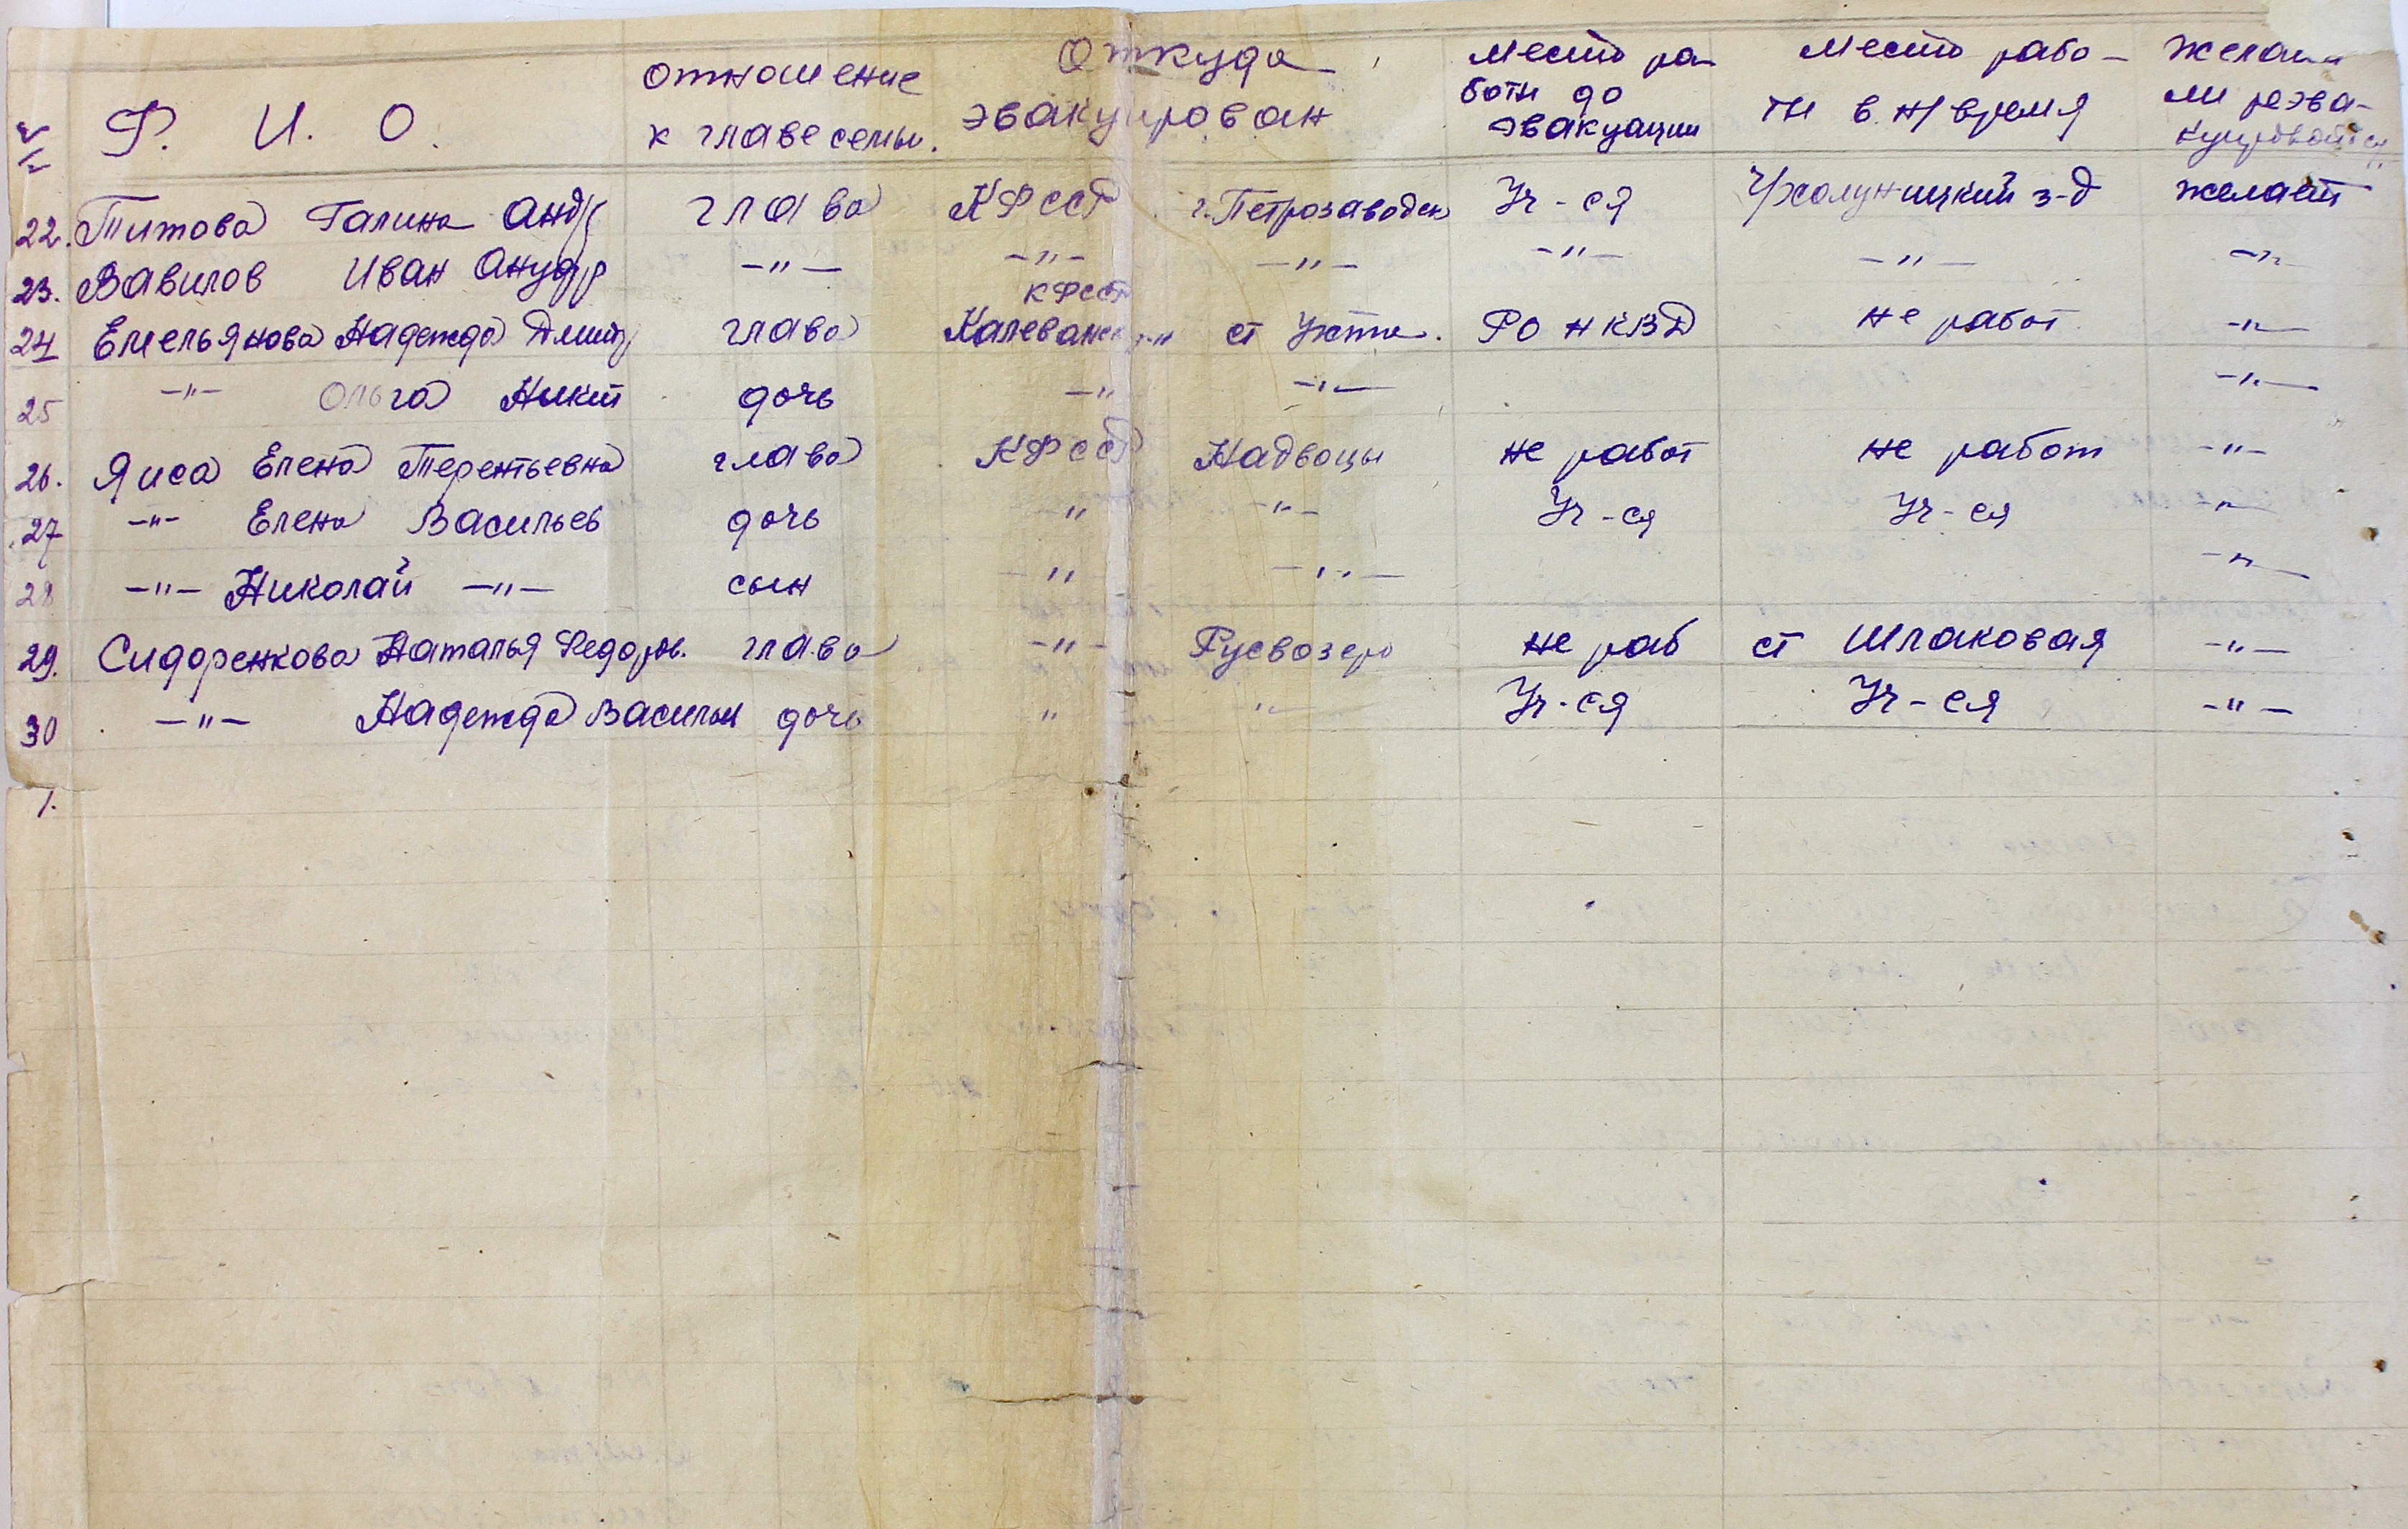 № п/п Ф. И. О. Отношение к главе семьи. Откуда эвакуирован Место работы до эвакуации Место работы в н/время Желает ли реэвакуироваться
22. Титова Галина Андр глава КФССР г. Петрозаводск Уч-ся Ч/холуницкий з-д желает
23. Вавилов Иван Ануфр -"- -"- -"- -"- -"- -"-
24 Емельянова Надежда Дмит глава КФССР Калеванск р-н ст Ухта. РО НКВД не работ -"-
25 -"- Ольга Никит дочь -"- -"- -"-
26. Яиса Елена Терентьевна глава КФССР Надвоцы не работ не работ -"-
27 -"- Елена Васильев дочь " -"- Уч-ся Уч-ся -"-
28 -"- Николай -"- сын -"- -"- -"-
29. Сидоренкова Наталья Федоров. глава -"- Ругвозеро не раб ст Шлаковая -"-
30 -"- Надежда Васильев дочь " "- Уч-ся Уч-ся -"-
1.